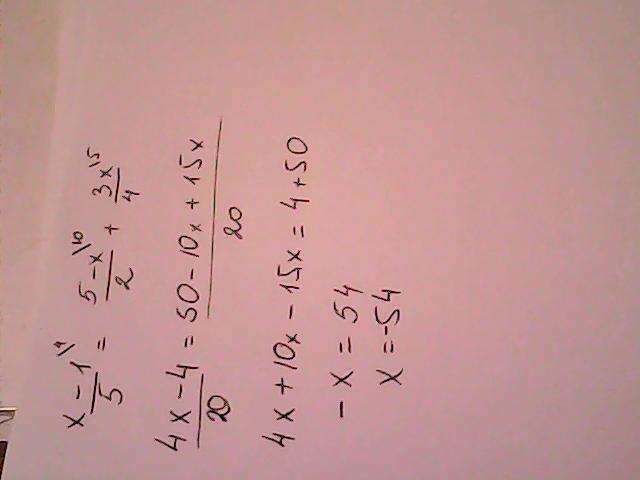 (x - 1)/5 \4 = (5 - x)/2 \10 + 3x/4 \5
(4x - 4)/20 = (50 - 10x + 15x)/20
4x + 10x - 15x = 4 + 50
- x = 54
x = -54